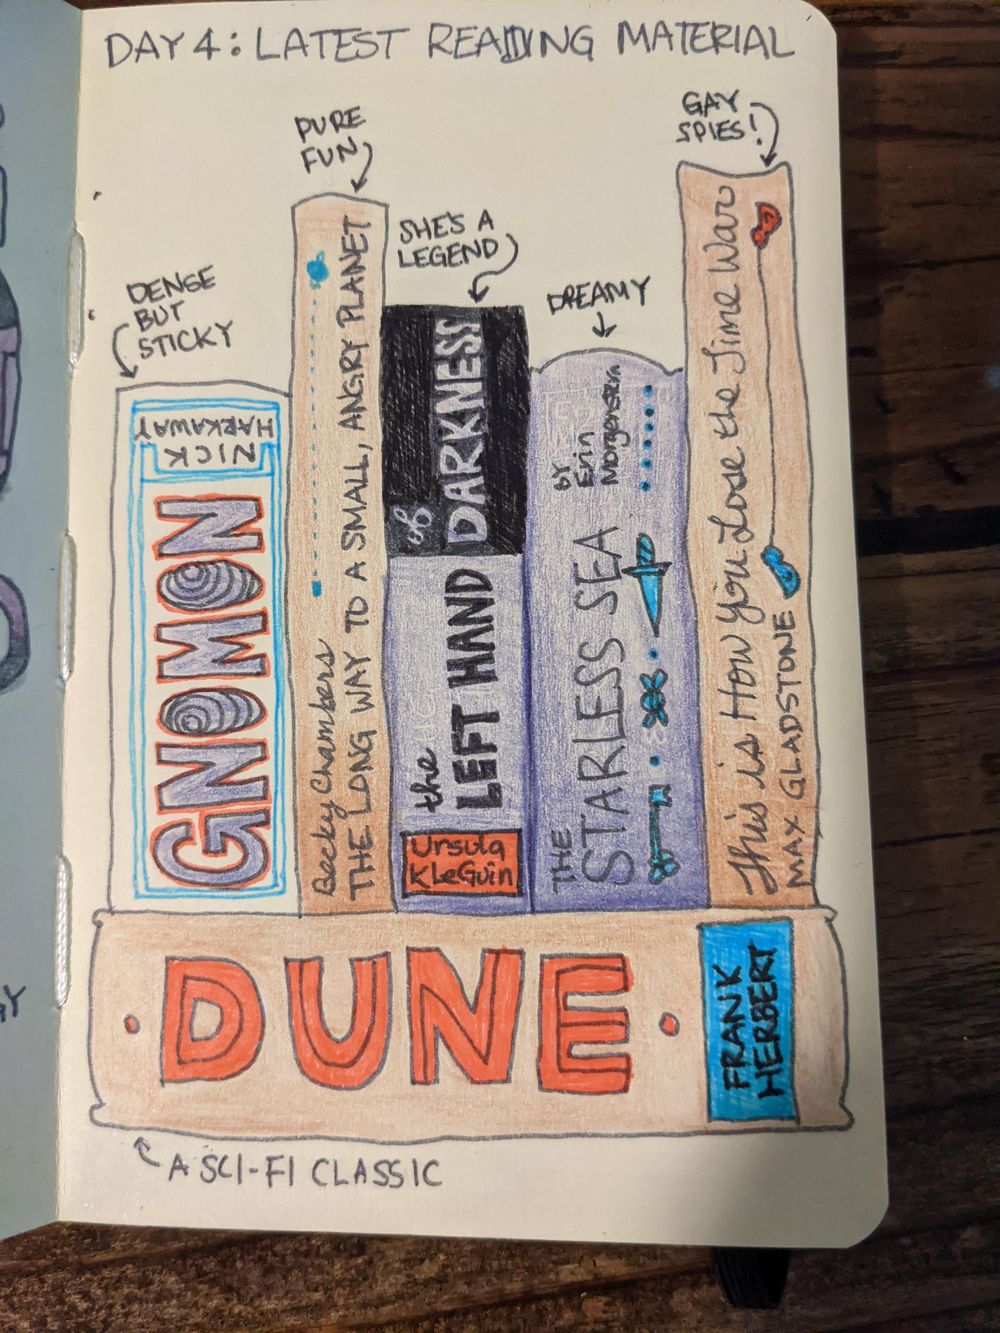 DAY 4: LATEST READING MATERIAL
PURE
FUN
GAY
SPIES!
SHE'S A
LEGEND
DENSE
BUT
STICKY
DREAMY
NICK
HARKAWAY
GNOMON
Becky Chambers
THE LONG WAY TO A SMALL, ANGRY PLANET
the
LEFT HAND
of
DARKNESS
Ursula
K LeGuin
THE
STARLESS SEA
BY
Erin
Morgenstern
This is How You Lose the Time War
MAX GLADSTONE
DUNE
FRANK
HERBERT
A SCI-FI CLASSIC